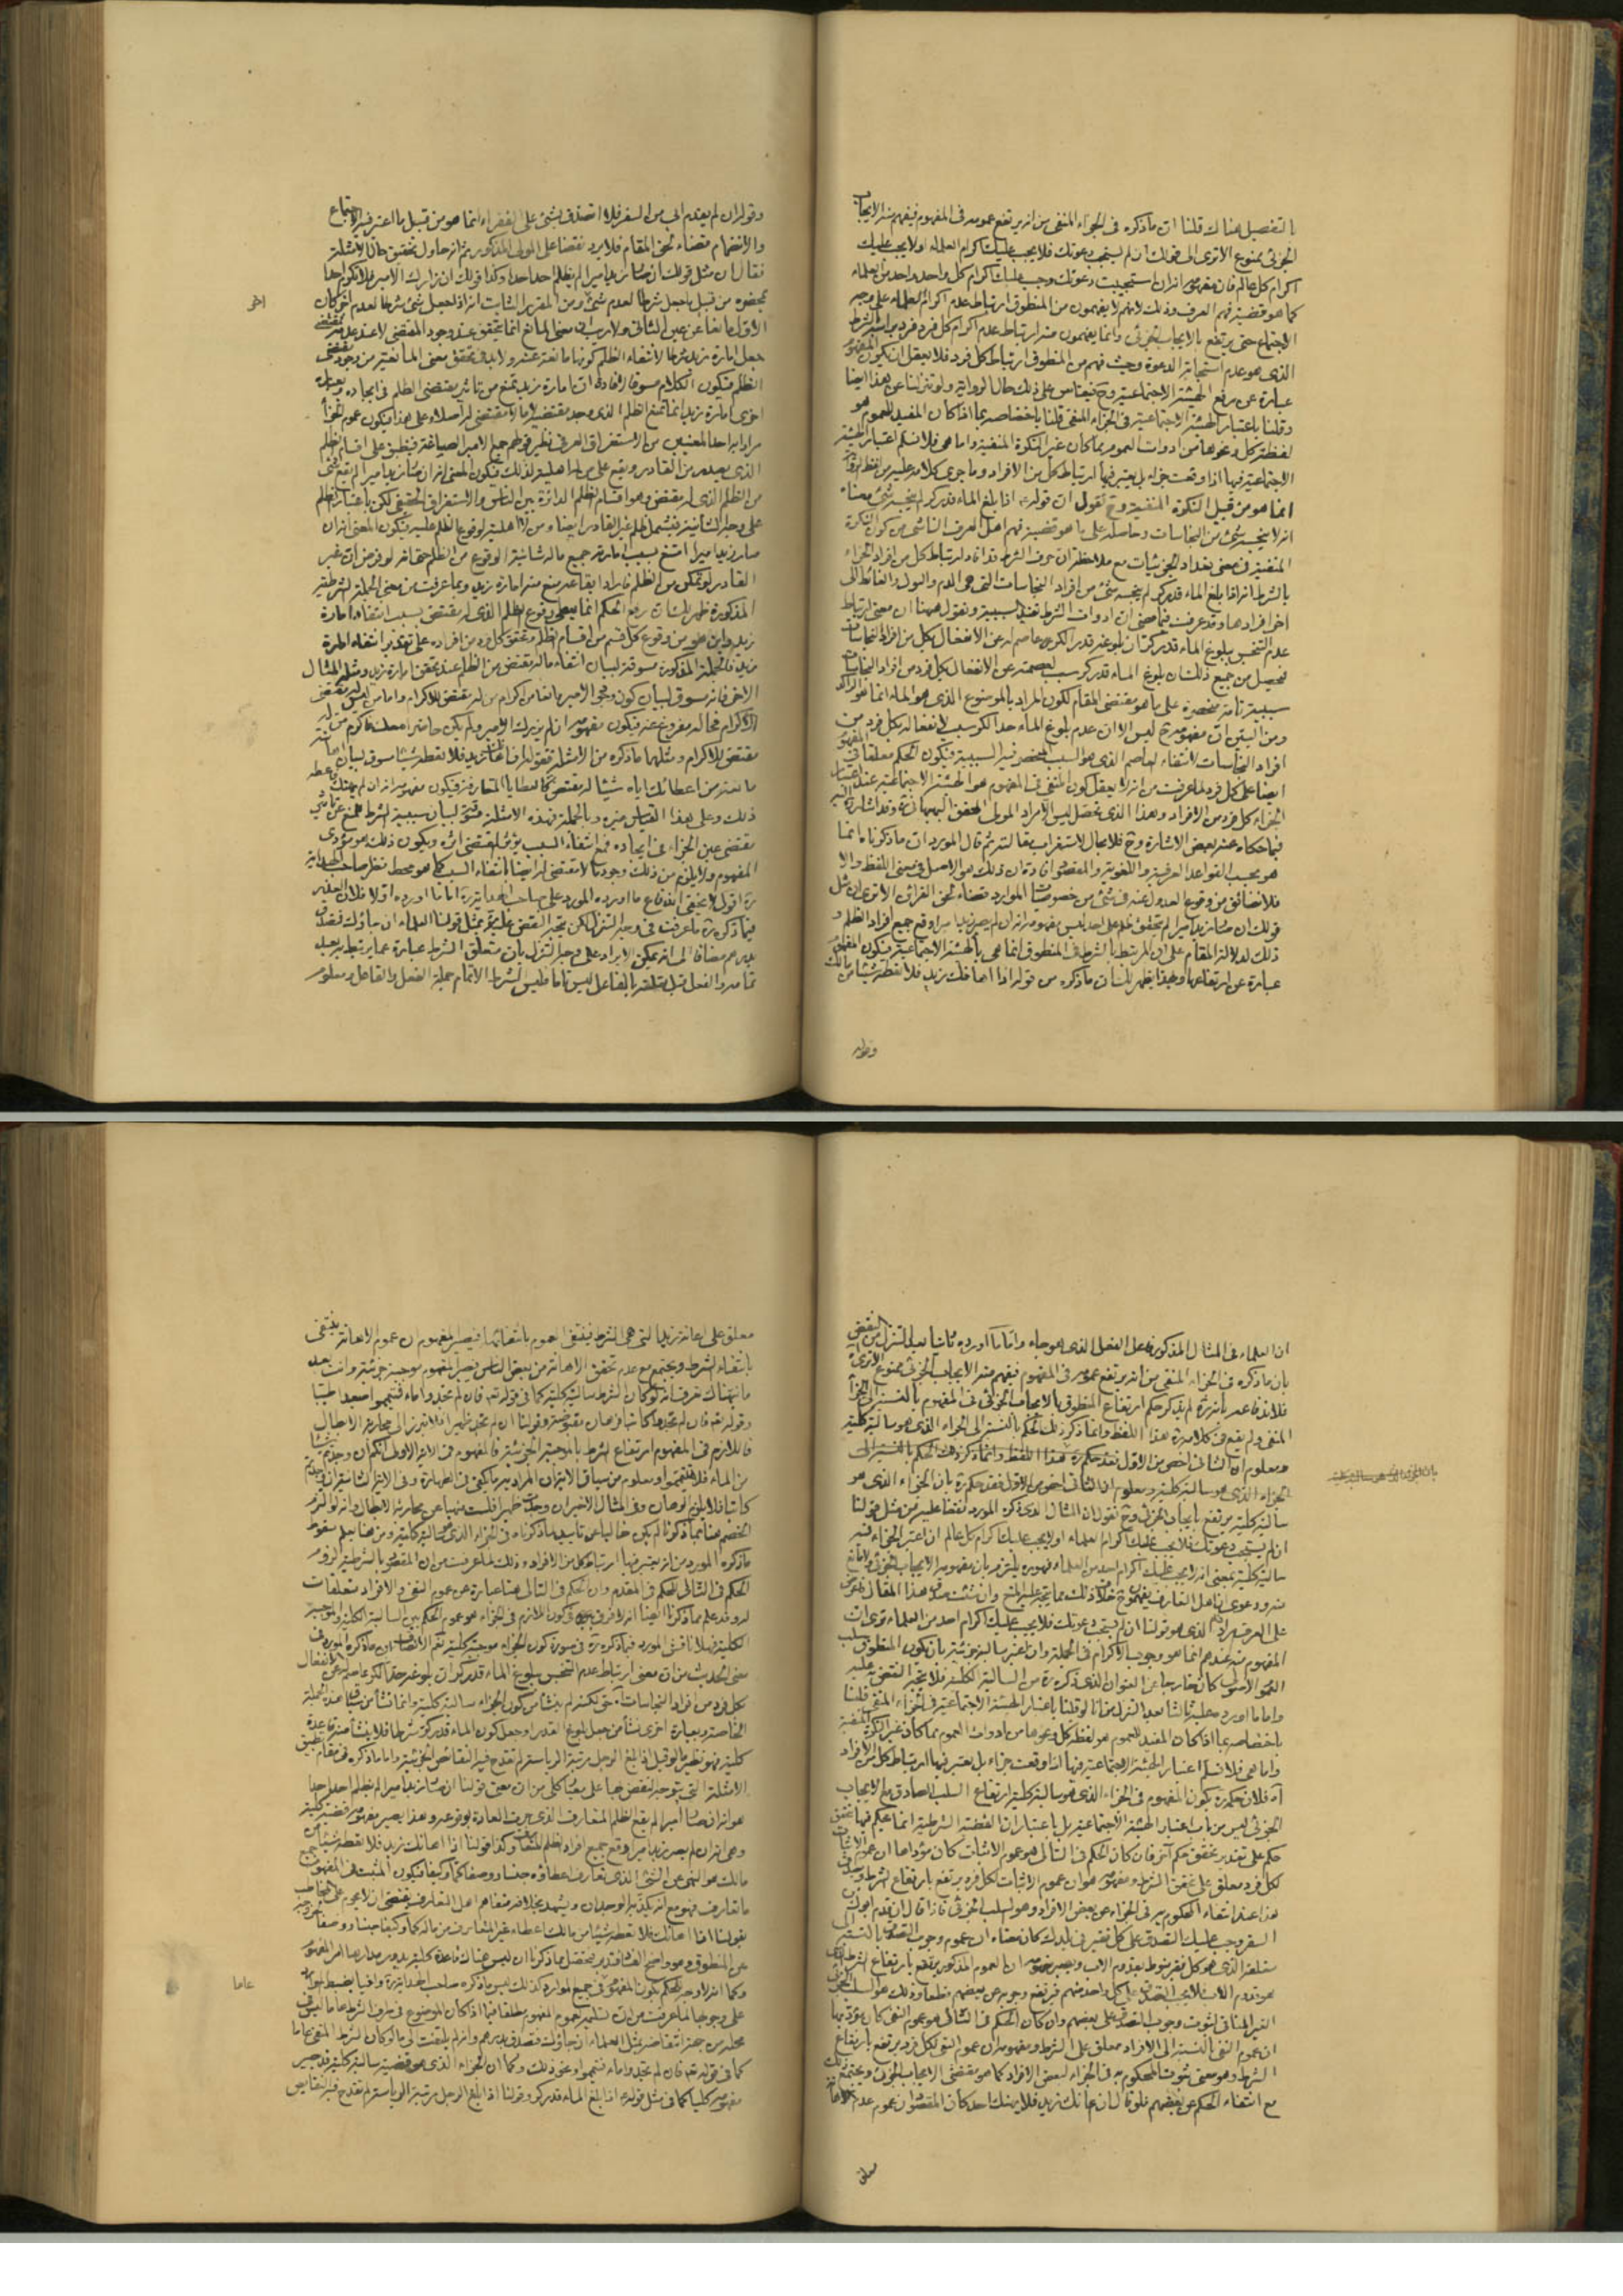 بالتفصيل هناك قلنا ان ماذكره فى الجزاء المنفى من انه يرتفع عمومه فى المفهوم فيفهم منه الايجاب
الجزئى ممنوع الاترى الى قولك ان لم يستجب دعوتك فلا يجب عليك اكرام العلماء اولا يجب عليك
اكرام كل عالم فان مفهومه انه ان استجيبت دعوتك وجب عليك اكرام كل واحد واحد من العلماء
كما هو قضية فهم العرف وذلك لانهم لا يفهمون من المنطوق ارتباط عدم اكرام العلماء على وجه
الاجتماع حتى يرتفع بالايجاب الجزئى وانما يفهمون منه ارتباط عدم اكرام كل فرد فرد
الذى هو عدم استجابة الدعوة وحيث فهم من المنطوق ارتباط كل فرد فلا يعقل ان يكون المفهوم
عبارة عن رفع الهيئة الاجتماعية وح فيقاس على ذلك حال الرواية ولو تنزلنا عن هذا ايضا
وقلنا باعتبار الهيئة الاجتماعية فى الجزاء المنفى قلنا باختصاصه بما اذا كان المفيد للعموم هو
لفظة كل ونحوها من ادوات العموم مما كان غير النكرة المنفية واما هى فلا نسلم اعتبار الهيئة
الاجتماعية فيها اذا وقعت جزاء بل يعتبر فيها ارتباط كل من الافراد وما جرى كلامه عليه من لفظ الرواية
انما هو من قبيل النكرة المنفية وح نقول ان قوله ع اذا بلغ الماء قدر كر لم ينجسه شئ معناه
انه لا ينجسه شئ من النجاسات وحاصله على ما هو قضية فهم اهل العرف الناشى من كون النكرة
المنفية فى معنى تعداد الجزئيات مع ملاحظة ان حرف الشرط قد افاد ارتباط كل من افراد الجزاء
بالشرط انه اذا بلغ الماء قدر كر لم ينجسه شئ من افراد النجاسات التى هى الدم والبول والغائط الى
اخر افرادها وقد عرفت فيما مضى ان ادوات الشرط تفيد السببية ونقول ههنا ان معنى ارتباط
عدم التنجس ببلوغ الماء قدر كر ان بلوغه قدر الكر عاصم له عن الانفعال بكل من افراد النجاسات
فحصل من جميع ذلك ان بلوغ الماء قدر كر سبب لعصمته عن الانفعال بكل فرد من افراد النجاسات
سببية تامة منحصرة على ما هو مقتضى المقام لكون المراد بالموضوع الذى هو الماء انما هو الراكد
ومن البيّن ان مفهومه ح ليس الا ان عدم بلوغ الماء حد الكر سبب لانفعاله بكل فرد من
افراد النجاسات لانتفاء العاصم الذى هو السبب المنحصر فيه السببية فيكون الحكم معلقا فى المفهوم
ايضا على كل فرد لما عرفت من انه لا يعقل كون المنفى فى المفهوم هو الهيئة الاجتماعية عند اعتبار
الجزاء كل فرد من الافراد وهذا الذى تحصل ليس الا مراد المولى المحقق البهبهانى وقد اشار اليه
فيما حكاه عنه بعض الاشارة وح فلا مجال لاستغراب مقالته ثم قال المورد ان ماذكرناه انما
هو بحسب القواعد العرفية واللغوية والمقصود افادة ان ذلك هو الاصل فى معنى اللفظ والا
فلا نضائق من وقوع العدول عنه فى شئ من خصوصيات الموارد قضاء لحق القرائن الاترى ان مثل
قولك ان صار زيد اميرا لم يتحقق ظلم على احد ليس مفهومه انه ان لم يصر زيد اميرا وقع جميع افراد الظلم و
ذلك لدلالة المقام على ان المرتبط بالشرط فى المنطوق انما هى بالهيئة الاجتماعية فيكون المفهوم
عبارة عن ارتفاعها وبهذا يظهر لك ان ماذكره من قوله اذا اهانك زيد فلا تعطه شيئا من مالك
وقوله
وقوله ان لم يقدم ابى من السفر فلا اتصدق بشئ على الفقراء انما هو من قبيل ما اعتبر فيه الاجتماع
والانضمام قضاء لحق المقام فلا يرد نقضا على المولى المذكور ثم انه حاول تحقيق حال الامثلة
فقال ان مثل قولك ان صار زيد اميرا لم يظلم احد احدا وكذا قولك ان زارك الامير فلا تكرم احدا
بحضوره من قبيل ما جعل شرطا لعدم شئ ومن المقرر الثابت انه اذا جعل شئ شرطا لعدم اخر كان
اخر
الاول مانعا عن عين الثانى ولا ريب ان معنى المانع انما يتحقق عند وجود المقتضى لا عند عدمه فمقتضى
جعل امارة زيد شرطا لانتفاء الظلم كونها مانعة عنه ولا بد فى تحقق معنى المانعية من وجود مقتضى
الظلم فيكون الكلام مسوقا لافادة ان امارة زيد تمنع من تاثير مقتضى الظلم فى ايجاده وبعبارة
اخرى امارة زيد انما تمنع الظلم الذى وجد مقتضيه لا ما لا مقتضى له اصلا وعلى هذا فيكون عموم الجزاء
مرادا به احد المعنيين من الاستغراق العرفى نظير قولهم جمع الامير الصاغة فينطبق على اقسام الظلم
الذى يصدر من القادر ويقع على من له اهلية لذلك فيكون المعنى انه ان صار زيد اميرا لم يقع شئ
من الظلم الذى له مقتض وهو اقسام الظلم الدائرة بين الناس والاستغراق الحقيقى لكن باعتبار الظلم
على وجه الشأنية فيشمل ظلم غير القادر ايضا ومن لا اهلية لوقوع الظلم عليه فيكون المعنى انه ان
صار زيد اميرا امتنع بسبب امارته جميع ما له شانية الوقوع من الظلم حتى انه لو فرض ان غير
القادر لو تمكن من الظلم فاراد ايقاعه منع منه امارة زيد وبما عرفت من معنى الجملة الشرطية
المذكورة ظهر لك ان رفع الحكم انما يعطى وقوع الظلم الذى له مقتض بسبب انتفاء امارة
زيد واين هو من وقوع كل قسم من اقسام الظلم وتحقق كل فرد من افراده على تقدير انتفاء امارة
زيد فالجملة المذكورة مسوقة لبيان انتفاء ما له مقتض من الظلم عند تحقق امارة زيد ومثله المثال
الاخر فانه سوق لبيان كون وجه الامير مانعا من اكرام من له مقتض للاكرام واما من ليس له مقتض
الاكرام فحاله مفروغ عنه فيكون مفهومه ان لم يزرك الامير ولم يكن حاضرا معك فاكرم من له
مقتض للاكرام ومثلهما ماذكره من الامثلة فقوله اذا اهانك زيد فلا تعطه شيئا مسوق لبيان ان اهانته
مانعة من اعطائك اياه شيئا له مقتض كالعطايا المتعارفة فيكون مفهومه انه ان لم يهنك فاعطه
ذلك وعلى هذا القياس غيره وبالجملة فهذه الامثلة مسوقة لبيان سببية الشرط للمنع عن تاثير
مقتضى عين الجزاء فى ايجاده فمع انتفاء السبب يؤثر المقتضى اثره ويكون ذلك هو مؤدى
المفهوم ولا يلزم من ذلك وجود ما لا مقتضى له ايضا بانتفاء السبب كما هو محط نظر صاحب الهداية
ره اقول لا يخفى اندفاع ما اورده المورد على صاحب الهداية ره اما ما اورده اولا فلان العذير
فيما ذكره ره ما عرفت فى وجه التنزل لكن يتجه النقض عليه بمثل قولنا العلماء ان جاؤك فتصدق
بدرهم مضافا الى انه يمكن الايراد على وجه التنزل بان متعلق الشرط عبارة عما يرتبط به بعد
تمامه والفعل قبل تعلقه بالفاعل ليس تاما فليس الشرط الا تمام جملة الفعل والفاعل ومعلوم
ان العلماء فى المثال المذكور فاعل الفعل الذى هو جاء واما ما اورده ثانيا بعد التنزل من النقض
بان ماذكره فى الجزاء المنفى من انه يرتفع عمومه فى المفهوم فيفهم منه الايجاب الجزئى ممنوع الاترى
فلاندفاعه بانه ره لم يذكر حكم ارتفاع المنطوق بالايجاب الجزئى فى المفهوم بالنسبة الى الجزاء
المنفى ولم يقع فى كلامه ره هذا اللفظ وانما ذكر ذلك الحكم بالنسبة الى الجزاء الذى هو سالبة كلية
ومعلوم ان الثانى اخص من الاول فقد حكم ره هذا اللفظ وانما ذكر ذلك الحكم بالنسبة الى
الجزاء الذى هو سالبة كلية ومعلوم ان الثانى اخص من الاول فقد حكم ره بان الجزاء الذى هو
سالبة كلية يرتفع بايجاب الجزئى وح نقول ان المثال الذى ذكره المورد نقضا عليه من مثل قولنا
ان لم يستجب دعوتك فلا يجب عليك اكرام العلماء اولا يجب عليك اكرام كل عالم ان اعتبر الجزاء فيه
سالبة كلية بمعنى انه لا يجب عليك اكرام احد من العلماء فهو ره يلتزم بان مفهومه الايجاب الجزئى ولا مانع
منه ودعوى ان اهل العرف يفهمون خلاف ذلك مما يتجه عليه المنع وان شئت صدق هذا المقال فاعرض
على العرف مرادف الذى هو قولنا ان لم يستجب دعوتك فلا يجب عليك اكرام احد من العلماء ترى ان
المفهوم منه عندهم انما هو وجوب الاكرام فى الجملة وان اعتبر سالبة جزئية بان يكون المنطوق سلب
العموم الاصولى كان خارجا عن العنوان الذى ذكره ره من السالبة الكلية فلا يتجه النقض به عليه
واما ما اورده عليه ثالثا بعد التنزل من انا لو قلنا باعتبار الهيئة الاجتماعية فى الجزاء المنفى قلنا
باختصاصه بما اذا كان المفيد للعموم هو لفظة كل ونحوها من ادوات العموم مما كان غير النكرة المنفية
واما هى فلا نسلم اعتبار الهيئة الاجتماعية فيها اذا وقعت جزاء بل يعتبر فيها ارتباط كل من الافراد
اه فلان حكمه ره بكون المفهوم فى الجزاء الذى هو سالبة كلية ارتفاع السلب الصادق مع الايجاب
الجزئى ليس من باب اعتبار الهيئة الاجتماعية بل باعتبار ان القضية الشرطية انما يحكم فيها بتحقق
حكم على تقدير تحقق حكم آخر فان كان الحكم فى التالى هو عموم الاثبات كان مؤداها ان عموم الاثبات
لكل فرد معلق على تحقق الشرط ومفهومه هو ان عموم الاثبات لكل فرد يرتفع بارتفاع الشرط ويصدق
هذا عند انتفاء المحكوم به فى الجزاء عن بعض الافراد وهو السلب الجزئى فاذا قال ان قدم ابوك من
السفر وجب عليك التصدق على كل فقير فى بلدك كان معناه ان عموم وجوب التصدق بالنسبة الى
متعلقه الذى هو كل فقير منوط بقدوم الاب ويصير مفهومه ان العموم المذكور يرتفع بارتفاع الشرط الذى
هو قدوم الاب فلا يجب التصدق على كل واحد منهم فيرتفع وجوبه عن بعضهم قطعا وذلك هو السلب الجزئى
الغير المنافى لثبوت وجوب التصدق على بعضهم وان كان الحكم فى التالى هو عموم النفى كان مؤديها
ان عموم النفى بالنسبة الى الافراد معلق على الشرط ومفهومه ان عموم النفى لكل فرد يرتفع بارتفاع
الشرط وهو معنى ثبوت المحكوم به فى الجزاء لبعض الافراد كما هو مقتضى الايجاب الجزئى ويجتمع ذلك
مع انتفاء الحكم عن بعضهم فلو قال ان اعانك زيد فلا يهنك احد كان المقصود ان عموم عدم الاهانة
معلق
معلق على اعانة زيد التى هى الشرط فينتفى العموم بانتفائها فيصير المفهوم ان عموم الاهانة ينتفى
بانتفاء الشرط ويجتمع مع عدم تحقق الاهانة من بعض الناس فيصير المفهوم موجبة جزئية وانت بعد
ما نبهناك تعرف انه لو كان الشرط سالبة كلية كما فى قوله تع فان لم تجدوا ماء فتيمموا صعيدا طيبا
وقوله تع فان لم تجدوا كاتبا فرهان مقبوضة وقولنا ان لم تجد ظهيرا فلا تبرز الى محاربة الابطال
فاللازم فى المفهوم ارتفاع الشرط بالموجبة الجزئية فالمفهوم فى الاية الاولى انكم ان وجدتم شيئا
من الماء فلا تتيمموا ومعلوم من سياق الاية ان المراد به ما يكفى فى الطهارة وفى الاية الثانية ان وجدتم
كاتبا فلا يلزم الرهان وفى المثال الاخير ان وجدت ظهيرا فلست منهيا عن محاربة الابطال وانه لو التزم
الخصم هنا بما ذكرنا لم يكن خاليا عن تاييد ما ذكرناه فى الجزاء الذى هو سالبة كلية ومن هنا يعلم سقوط
ماذكره المورد من انه يعتبر فيها ارتباط كل من الافراد وذلك لما عرفت من ان المقصود بالشرطية لزوم
الحكم فى التالى للحكم فى المقدم وان الحكم فى التالى هنا عبارة عن عموم النفى والافراد متعلقات
له وقد علم مما ذكرنا ايضا انه لا فرق بينه فى كون اللازم فى الجزاء هو عموم الحكم بين السالبة الكلية والموجبة
الكلية
معنى الحديث من ان معنى ارتباط عدم التنجس ببلوغ الماء قدر كر ان بلوغه حد الكر عاصم له عن الانفعال
بكل فرد من افراد النجاسات حق لكنه لم ينشأ من كون الجزاء سالبة كلية وانما نشأ من سياق هذه الجملة
الخاصة وبعبارة اخرى نشأ من جعل بلوغ القدر وجعل كون الماء قدر كر شرطا فلا ينشأ منه قاعدة
كلية فهو نظير ما لو قيل اذا بلغ الرجل مرتبة الرياسة لم تقدح فيه النقائص الجزئية واما ماذكره فى مقام تطبيق
الامثلة التى يتوجه النقض بها على مختاره من ان معنى قولنا ان صار زيد اميرا لم يظلم احد احدا
هو انه ان صار اميرا لم يقع الظلم المتعارف الذى جرت العادة بوقوعه وهذا يصير مفهومه قضية كلية
وهى انه ان لم يصر زيد اميرا وقع جميع افراد الظلم المتعارف وكذا قولنا اذا اهانك زيد فلا تعطه شيئا من
مالك هو النهى عن الشئ الذى تعارف اعطاؤه جنسا ووصفا وكما وكيفا فيكون المثبت فى المفهوم جميع
ما تعارف فهو مع انه يكذبه الوجدان ويشهد بخلافه متفاهم اهل التعارف يقتضى ان لا يحرم على المخاطب
بقولنا اذا اهانك فلا تعطه شيئا من مالك اعطاء غير المتعارف من ماله كما وكيفا جنسا ووصفا لخروجه
عن المنطوق وهو واضح الفساد فتدبر فتحصل مما ذكرنا ان ليس هناك قاعدة كلية يدور مدارها امر المفهوم
وكما انه لا وجه للحكم بكون المفهوم فى جميع الموارد كذلك ليس ماذكره صاحب الهداية ره وافيا بضبط الموارد
على وجهها لما عرفت من ان تسليمه عموم المفهوم مطلقا فيما اذا كان الموضوع فى طرف الشرط عاما ليس فى
عاما
محله من جهة انتقاضه بمثل العلماء ان جاؤك فتصدق بدرهم وانه لم يلتفت الى ما لو كان الشرط المنفى عاما
كما فى قوله تعه فان لم تجدوا ماء فتيمموا ونحو ذلك وكما ان الجزاء الذى هو قضية سالبة كلية قد يجئ
مفهومه كليا كما فى مثل قوله ع اذا بلغ الماء قدر كر وقولنا اذا بلغ الرجل مرتبة الرياسة لم تقدح فيه النقايص